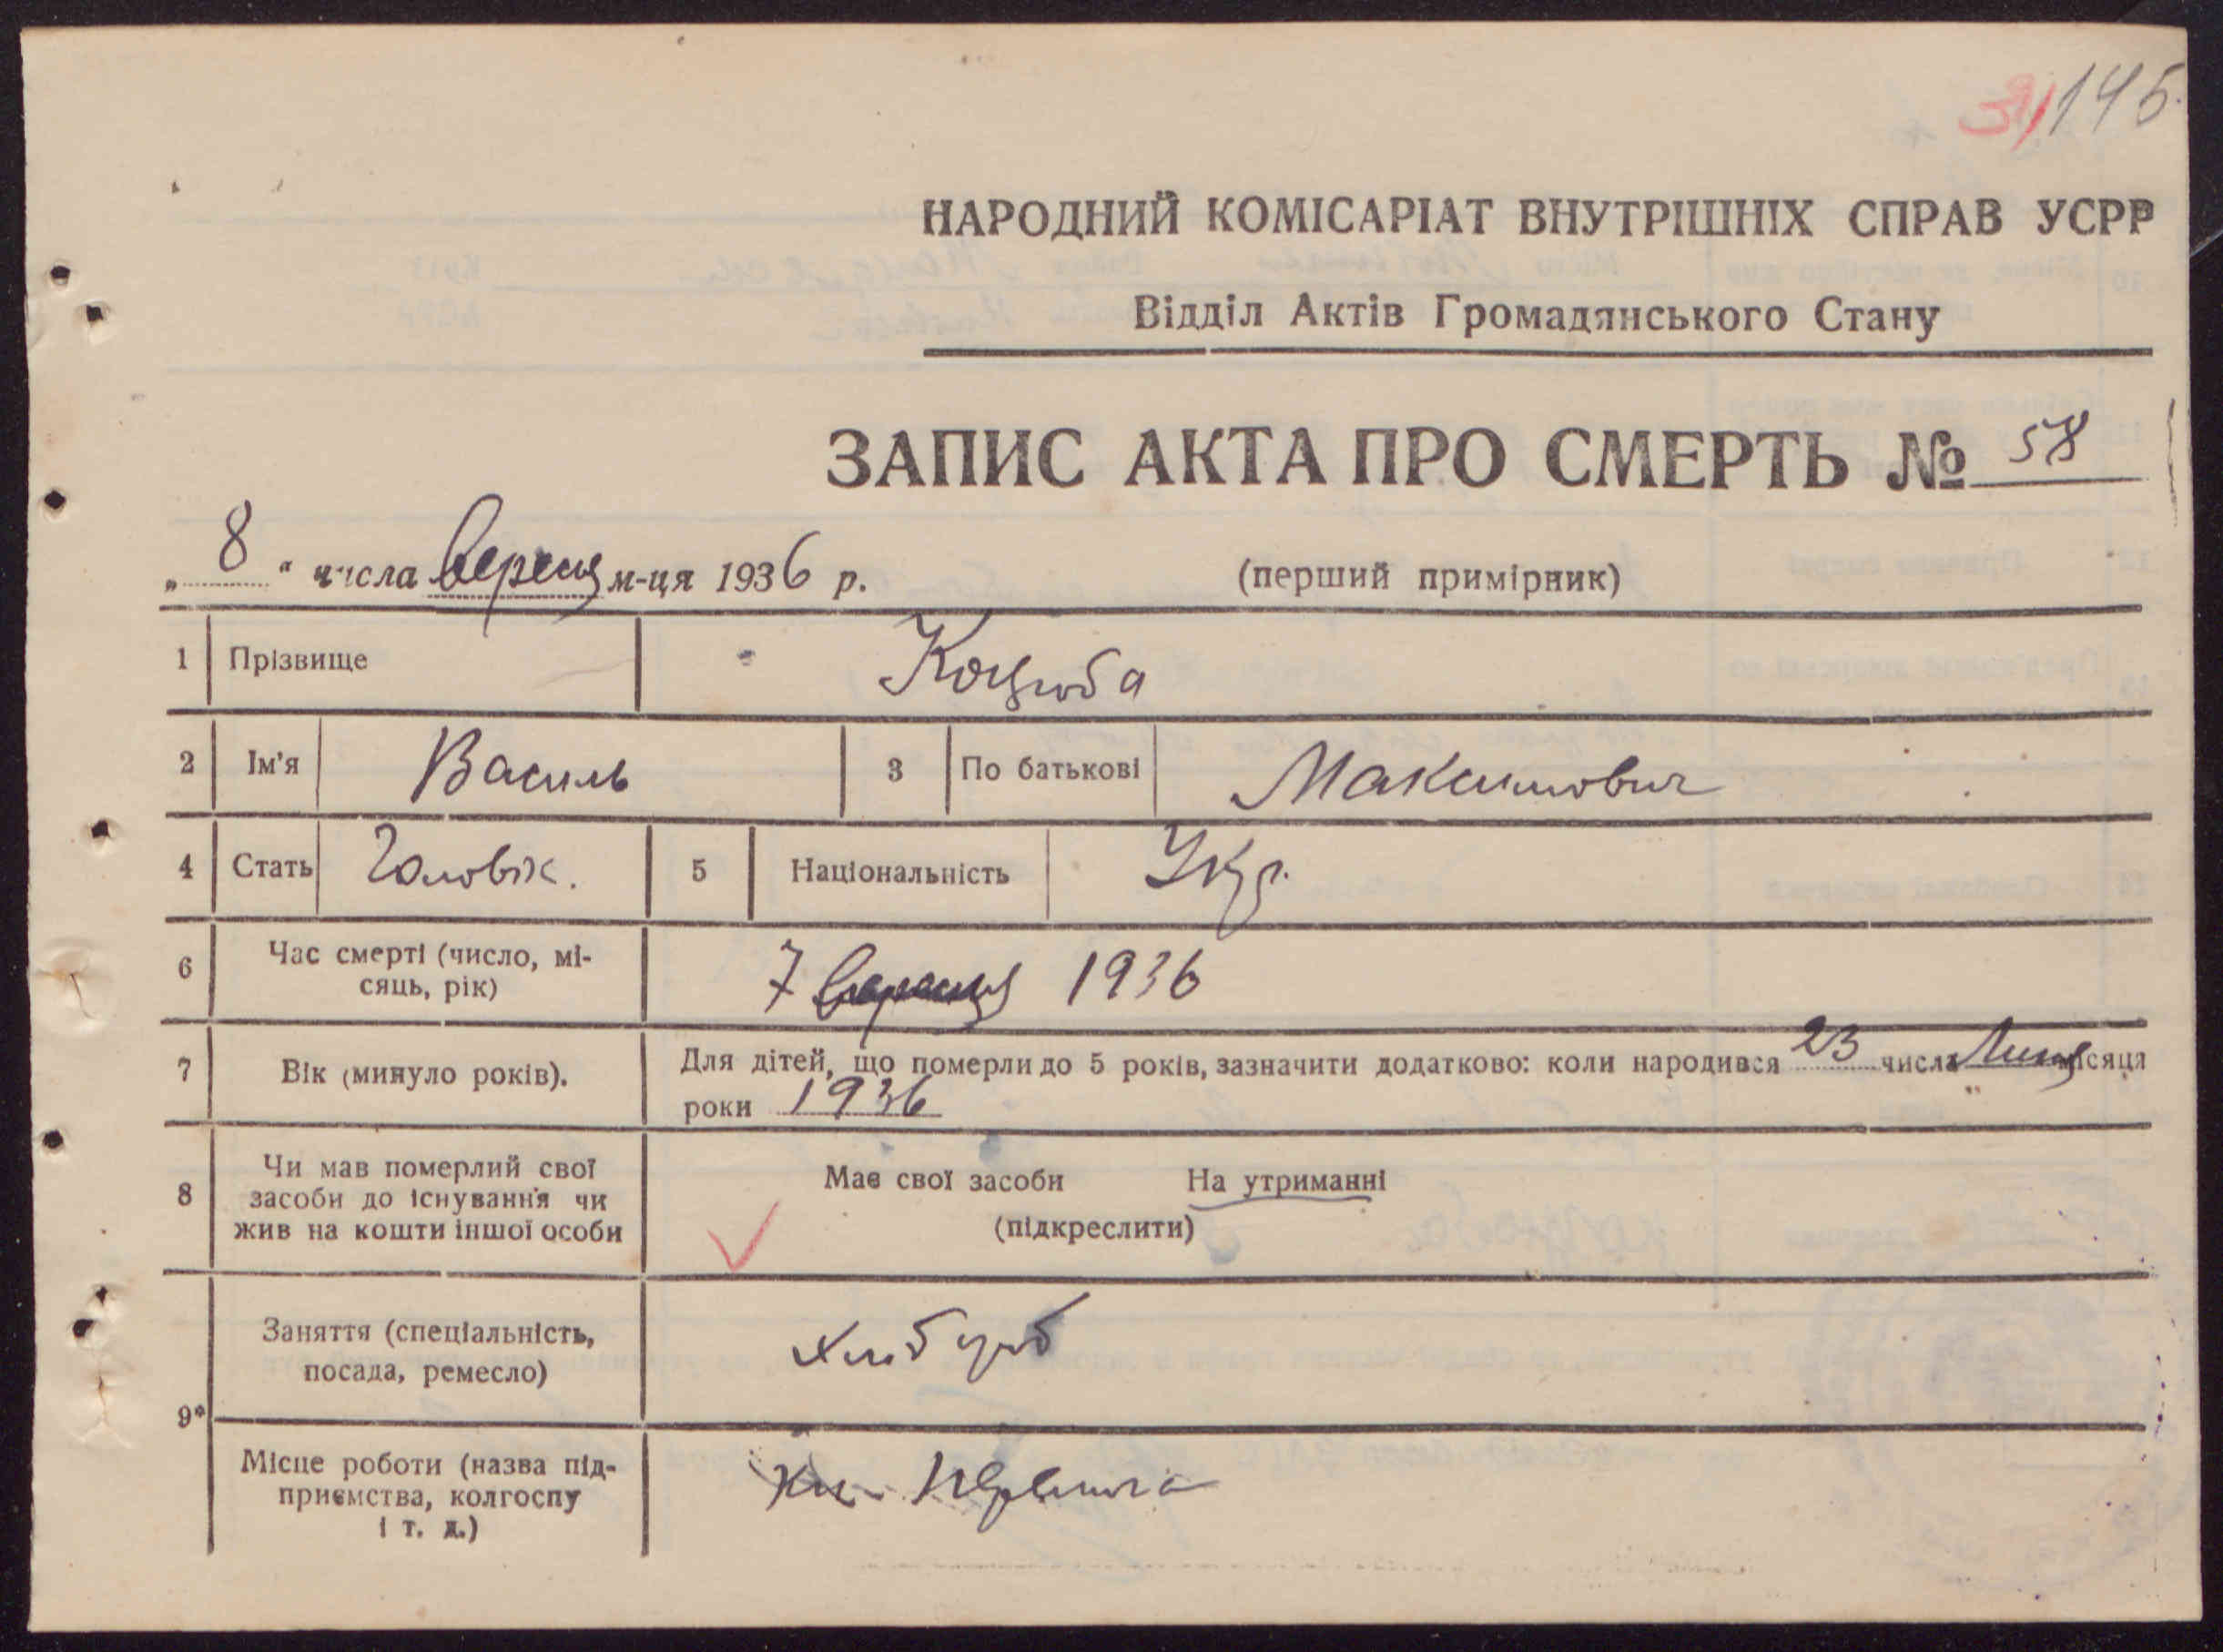 31/ 145
НАРОДНИЙ КОМІСАРІАТ ВНУТРІШНІХ СПРАВ УСРР
Відділ Актів Громадянського Стану
ЗАПИС АКТА ПРО СМЕРТЬ № 58
„ 8 “ числа вересня м-ця 1936 р. (перший примірник)
1 Прізвище Коцюба
2 Ім'я Василь 3 По батькові Максимович
4 Стать Чоловік. 5 Національність Укр.
6 Час смерті (число, мі-
сяць, рік) 7 вересня 1936
7 Вік (минуло років). Для дітей, що померли до 5 років, зазначити додатково: коли народився 23 числа Липня місяця
роки 1936
8 Чи мав померлий свої
засоби до існування чи
жив на кошти іншої особи
Має свої засоби На утриманні
(підкреслити)
9*
Заняття (спеціальність,
посада, ремесло) хлібороб
Місце роботи (назва під-
приємства, колгоспу
і т. д.)